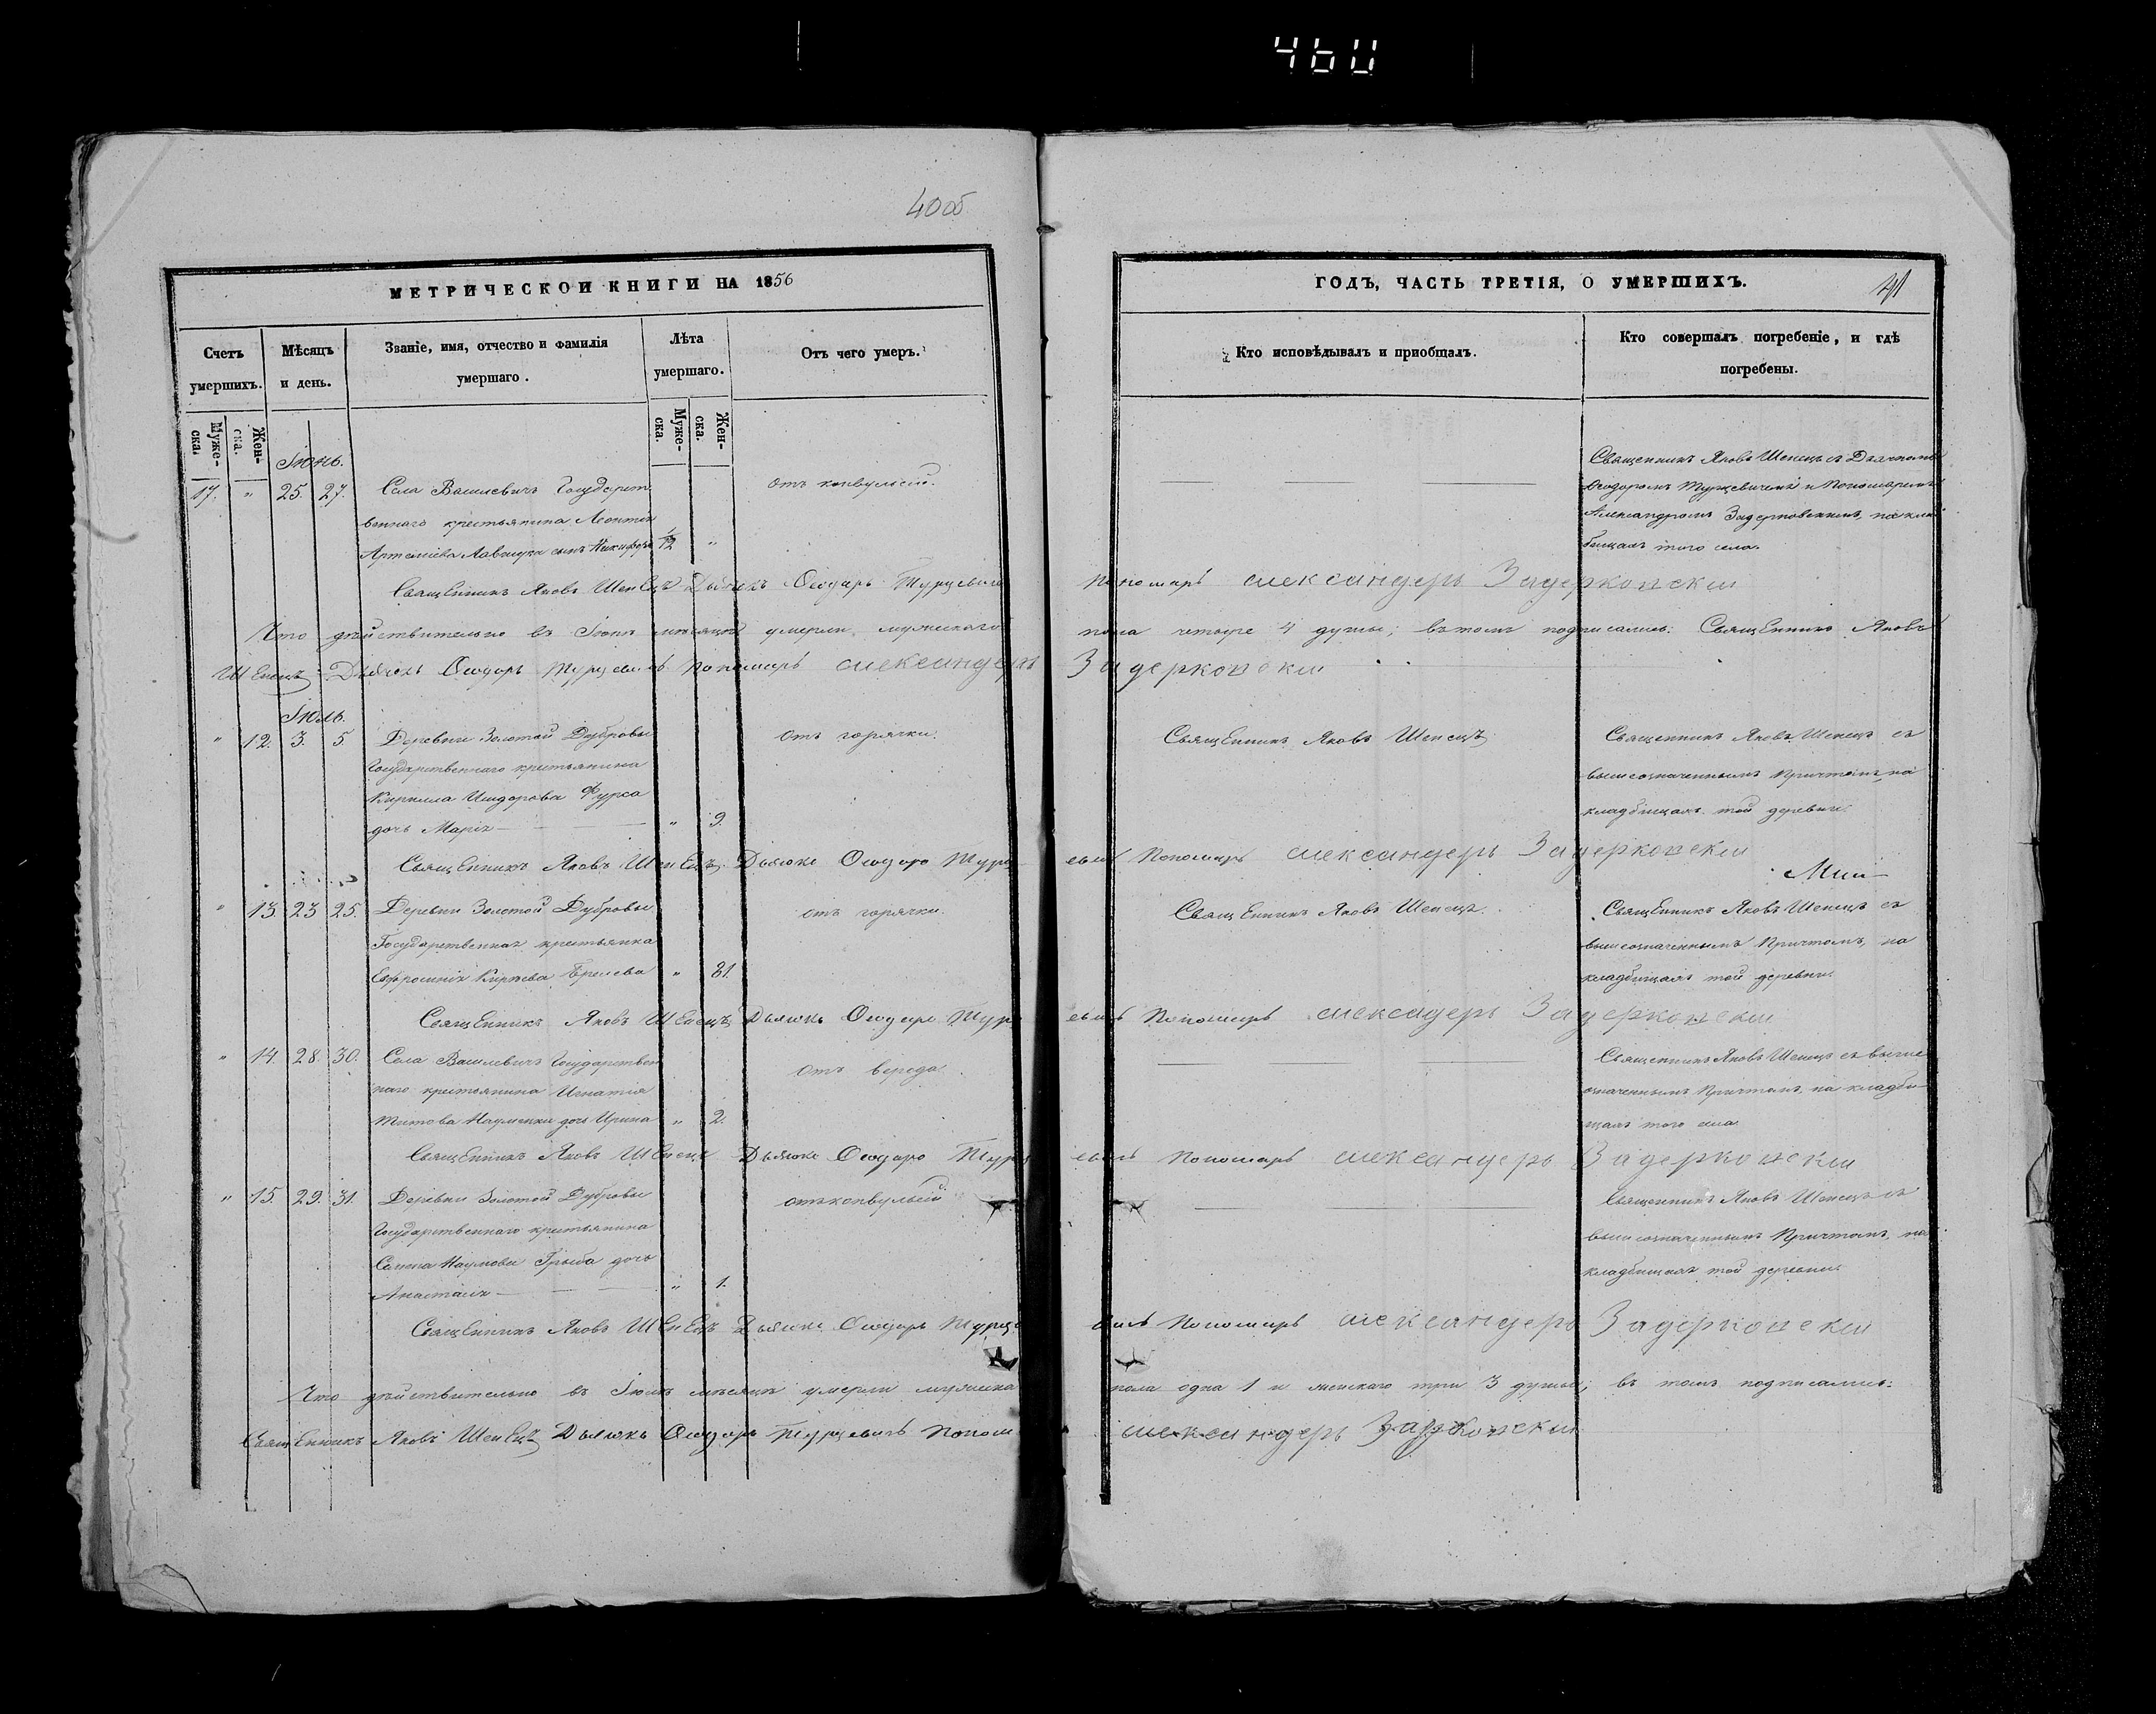 460
40 об
МЕТРИЧЕСКОЙ КНИГИ НА 1856
Счетъ умершихъ.
Мѣсяцъ и день.
Званіе, имя, отчество и фамилія умершаго.
Лѣта умершаго.
Отъ чего умеръ.
Муже-ска.
Жен-ска.
Муже-ска.
Жен-ска.
ГОДЪ, ЧАСТЬ ТРЕТІЯ, О УМЕРШИХЪ.
41
Кто исповѣдывалъ и пріобщалъ.
Кто совершалъ погребеніе, и гдѣ погребены.
Іюнь.
17. " 25. 27. Села Василевичъ Государст-
веннаго крестьянина Леонтія
Артеміева сынъ Никифоръ "
отъ конвульсій.
Священникъ Яковъ Шепецъ съ Дьячкомъ
Ѳеодоромъ Турцевичемъ и Пономаремъ
Александромъ на клад-
бищахъ того села.
Священникъ Яковъ Шепецъ Дьячокъ Ѳеодоръ Турцевичъ Пономарь Александеръ
Что дѣйствительно въ Іюнѣ мѣсяцѣ умерли мужескаго пола четыре 4 души; въ томъ подписались: Священникъ Яковъ
Шепецъ Дьячокъ Ѳеодоръ Турцевичъ Пономарь Александеръ
Іюль.
" 12. 3. 5. Деревни Золотой Дубровы
Государственнаго крестьянина
Кирилла Исидорова Фурса
дочь Марія " 9.
отъ горячки.
Священникъ Яковъ Шепецъ
Священникъ Яковъ Шепецъ съ
вышеозначеннымъ Причтомъ, на
кладбищахъ той деревни.
Священникъ Яковъ Шепецъ Дьячокъ Ѳеодоръ Турцевичъ Пономарь Александеръ
" 13. 23. 25. Деревни Золотой Дубровы
Государственная крестьянка
Евфросинія " 81.
отъ горячки.
Священникъ Яковъ Шепецъ.
Священникъ Яковъ Шепецъ съ
вышеозначеннымъ Причтомъ, на
кладбищахъ той деревни.
Священникъ Яковъ Шепецъ Дьячокъ Ѳеодоръ Турцевичъ Пономарь Алексадеръ
" 14. 28. 30. Села Василевичъ Государствен-
наго крестьянина Игнатія
Титова Науменки дочь Ирина " 2.
отъ вереда.
Священникъ Яковъ Шепецъ съ выше
означеннымъ Причтомъ, на кладби-
щахъ того села.
Священникъ Яковъ Шепецъ Дьячокъ Ѳеодоръ Турцевичъ Пономарь Александеръ
" 15. 29. 31. Деревни Золотой Дубровы
Государственнаго крестьянина
Наумова Грыба дочь
Анастасія " 1.
отъ конвульсій
Священникъ Яковъ Шепецъ съ
вышеозначеннымъ Причтомъ, на
кладбищахъ той деревни.
Священникъ Яковъ Шепецъ Дьячокъ Ѳеодоръ Турцевичъ Пономарь Александеръ
Что дѣйствительно въ Іюлѣ мѣсяцѣ умерли мужска пола одна 1 и женскаго три 3 души; въ томъ подписались:
Священникъ Яковъ Шепецъ Дьячокъ Ѳеодоръ Турцевичъ Поном Александеръ